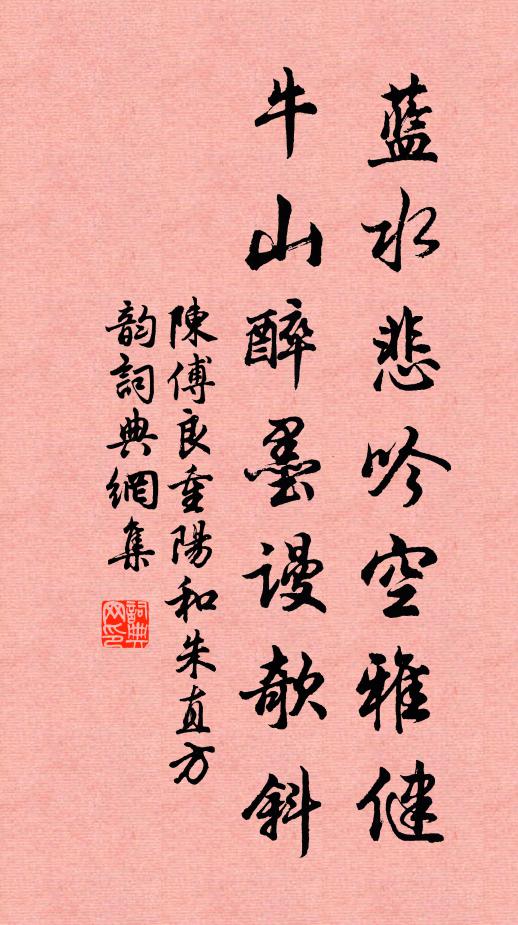 藍水悲吟空雅健
牛山醉墨謾欹斜
陳傅良重陽和朱直方
韵詞典網集
詞典网印